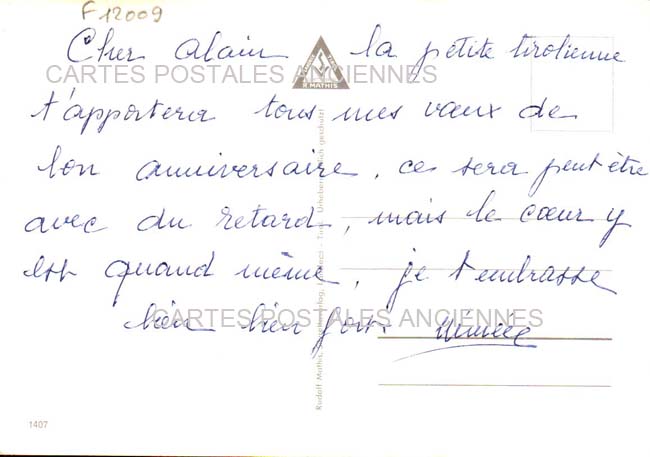 F 12009
Cher Alain, la petite tirolienne
t'apportera tous mes vœux de
bon anniversaire, ce sera peut être
avec du retard, mais le cœur y
est quand même, je t'embrasse
bien bien fort.
R MATHIS
CARTES POSTALES ANCIENNES
CARTES POSTALES ANCIENNES
Rudolf Mathis,
1407